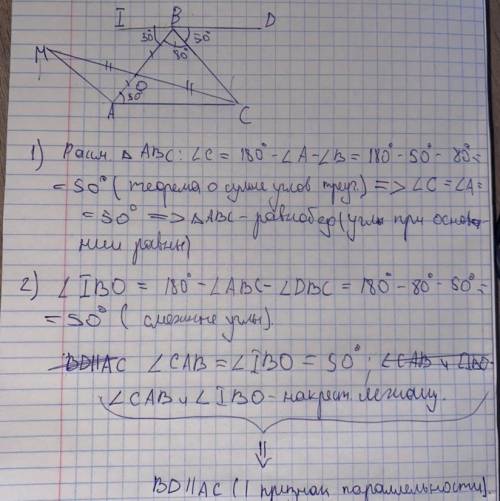 I B D
50° 50°
80°
M
O
50°
A C
1) Рассм. △ ABC: ∠C = 180° - ∠A - ∠B = 180° - 50° - 80° =
= 50° (теорема о сумме углов треуг.) => ∠C = ∠A =
= 50° => △ABC - равнобед (углы при основа-
нии равны)
2) ∠IBO = 180° - ∠ABC - ∠DBC = 180° - 80° - 50° =
= 50° (смежные углы).
BD||AC ∠CAB = ∠IBO = 50°; ∠CAB и ∠IBO-
∠CAB и ∠IBO - накрест лежащу.
BD||AC (1 признак параллельности)